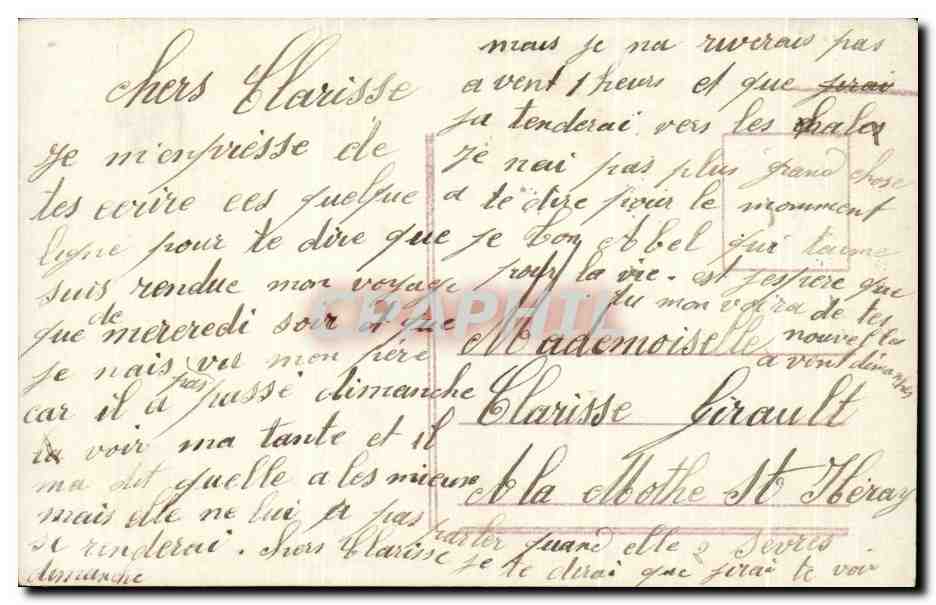 chers Clarisse
Je m'enprèsse de
tes ecrire ces quelque
ligne pour te dire que
suis rendue mon voyage
que de mercredi soir et que
je nais vu mon père
car il a pas passé dimanche
voir ma tante et il
ma dit quelle a les mieux
mais elle ne lui a pas parler quand elle
si renderai. chers Clarisse je te dirai que jirai te voir
dimanche
mais je na riverais pas
avent 1 heurs et que jirai
ja tenderai vers les
Je nai pas plus grand chose
a te dire pour le momment
je ton Abel qui taime
pour la vie. est jespère que
tu mon voira de tes
nouvelles
avent dimanche
Mademoiselle
Clarisse Girault
A la Mothe St Héray
2 Sèvres
CPAPHIL